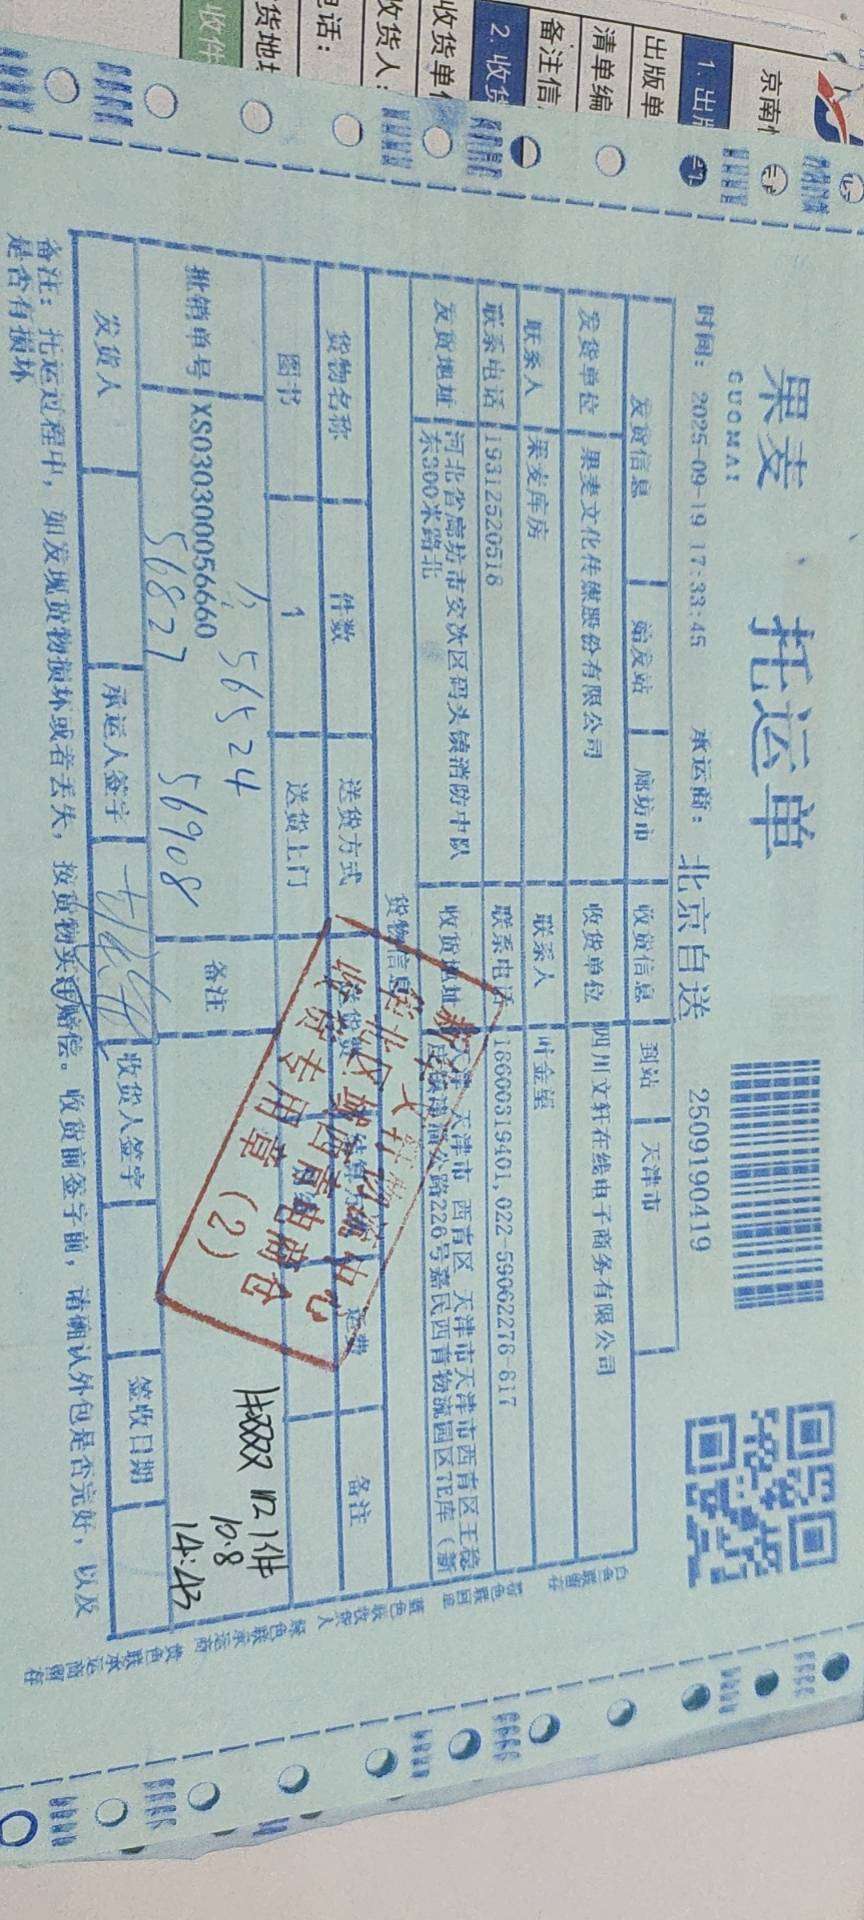 果麦
GUOMAI
托运单
时间: 2025-09-19 17:33:45 承运商: 北京自送 2509190419
发货信息 始发站 廊坊市 收货信息 到站 天津市
发货单位 果麦文化传媒股份有限公司 收货单位 四川文轩在线电子商务有限公司
联系人 果麦库房 联系人 叶金望
联系电话 19312520518 联系电话 18600319401,022-59062278-817
发货地址 河北省廊坊市安次区码头镇消防中队
东300米路北
收货地址 天津 天津市 西青区 天津市天津市西青区王稳
庄镇 公路226号嘉民西青物流园区7E库 (新
货物信息
货物名称 件数 送货方式 运费 备注
图书 1 送货上门
批销单号 XS030300056660
56524
56827 56908
备注
收货专用章 (2)
1件
10.8
14:43
发货人 承运人签字 收货人签字 签收日期
备注: 托运过程中, 如发现货物损坏或者丢失, 按货物实 赔偿。收货前签字前, 请确认外包是否完好, 以及
是否有损坏
白色联留存 粉色联回显 蓝色联收货人 绿色联承运商 黄色联承运商留存
京南
1. 出版
出版单
清单编
备注信
2. 收货
收货单位
收货人:
电话:
货地址
收件